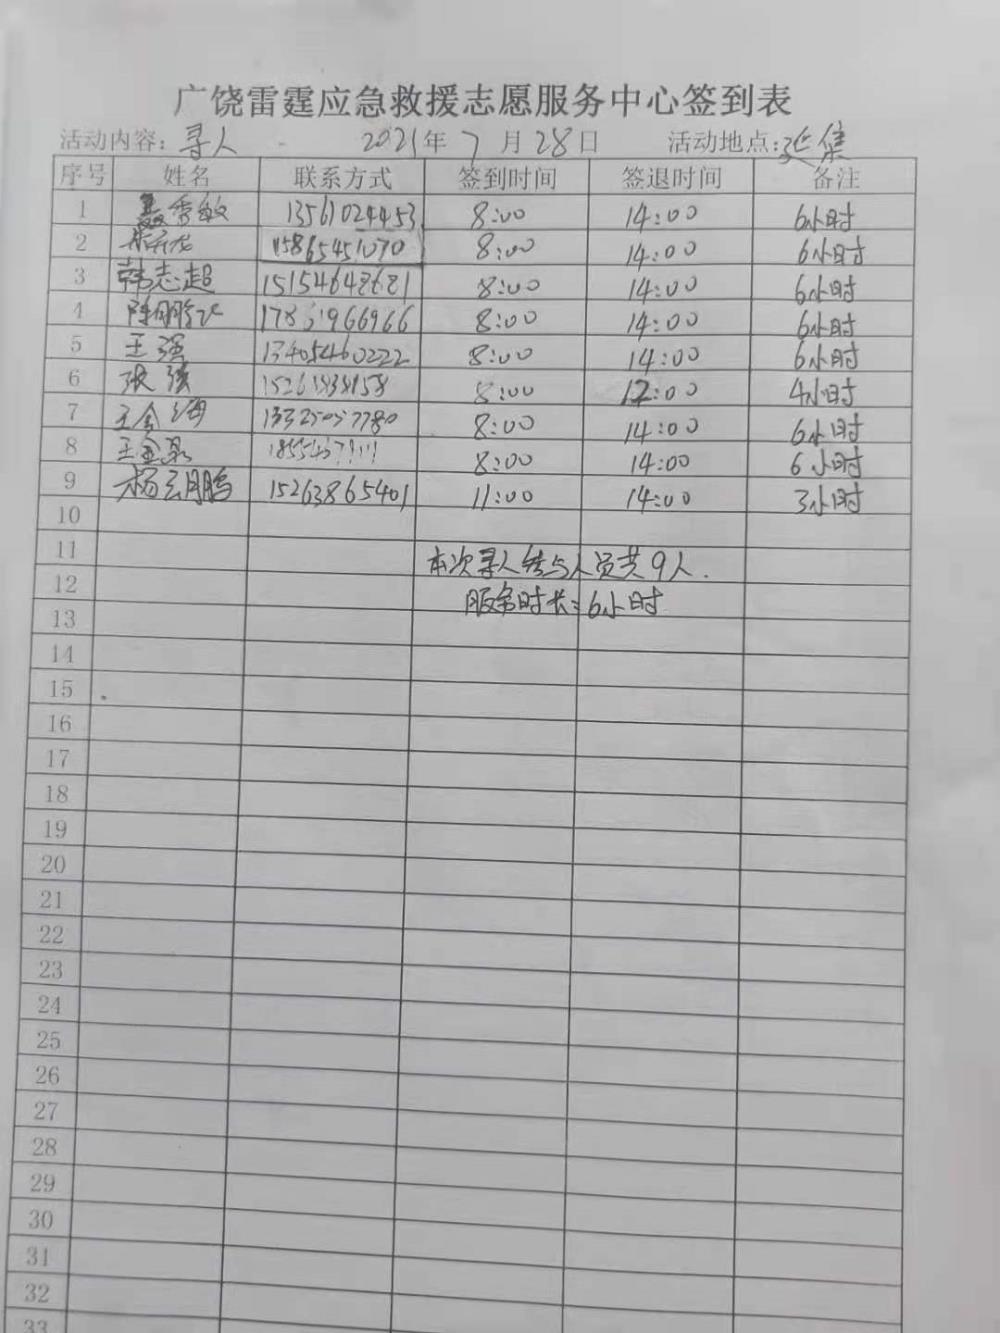 广饶雷霆应急救援志愿服务中心签到表
活动内容：寻人 2021年7月28日 活动地点：延集
序号 姓名 联系方式 签到时间 签退时间 备注
1 聂秀敏 13561024453 8:00 14:00 6小时
2 15865451070 8:00 14:00 6小时
3 韩志超 8:00 14:00 6小时
4 8:00 14:00 6小时
5 王强 13405460222 8:00 14:00 6小时
6 张强 8:00 12:00 4小时
7 王金海 8:00 14:00 6小时
8 8:00 14:00 6小时
9 杨云鹏 15263865401 11:00 14:00 3小时
10
11 本次寻人参与人员共9人.
12 服务时长：6小时
13
14
15
16
17
18
19
20
21
22
23
24
25
26
27
28
29
30
31
32
33